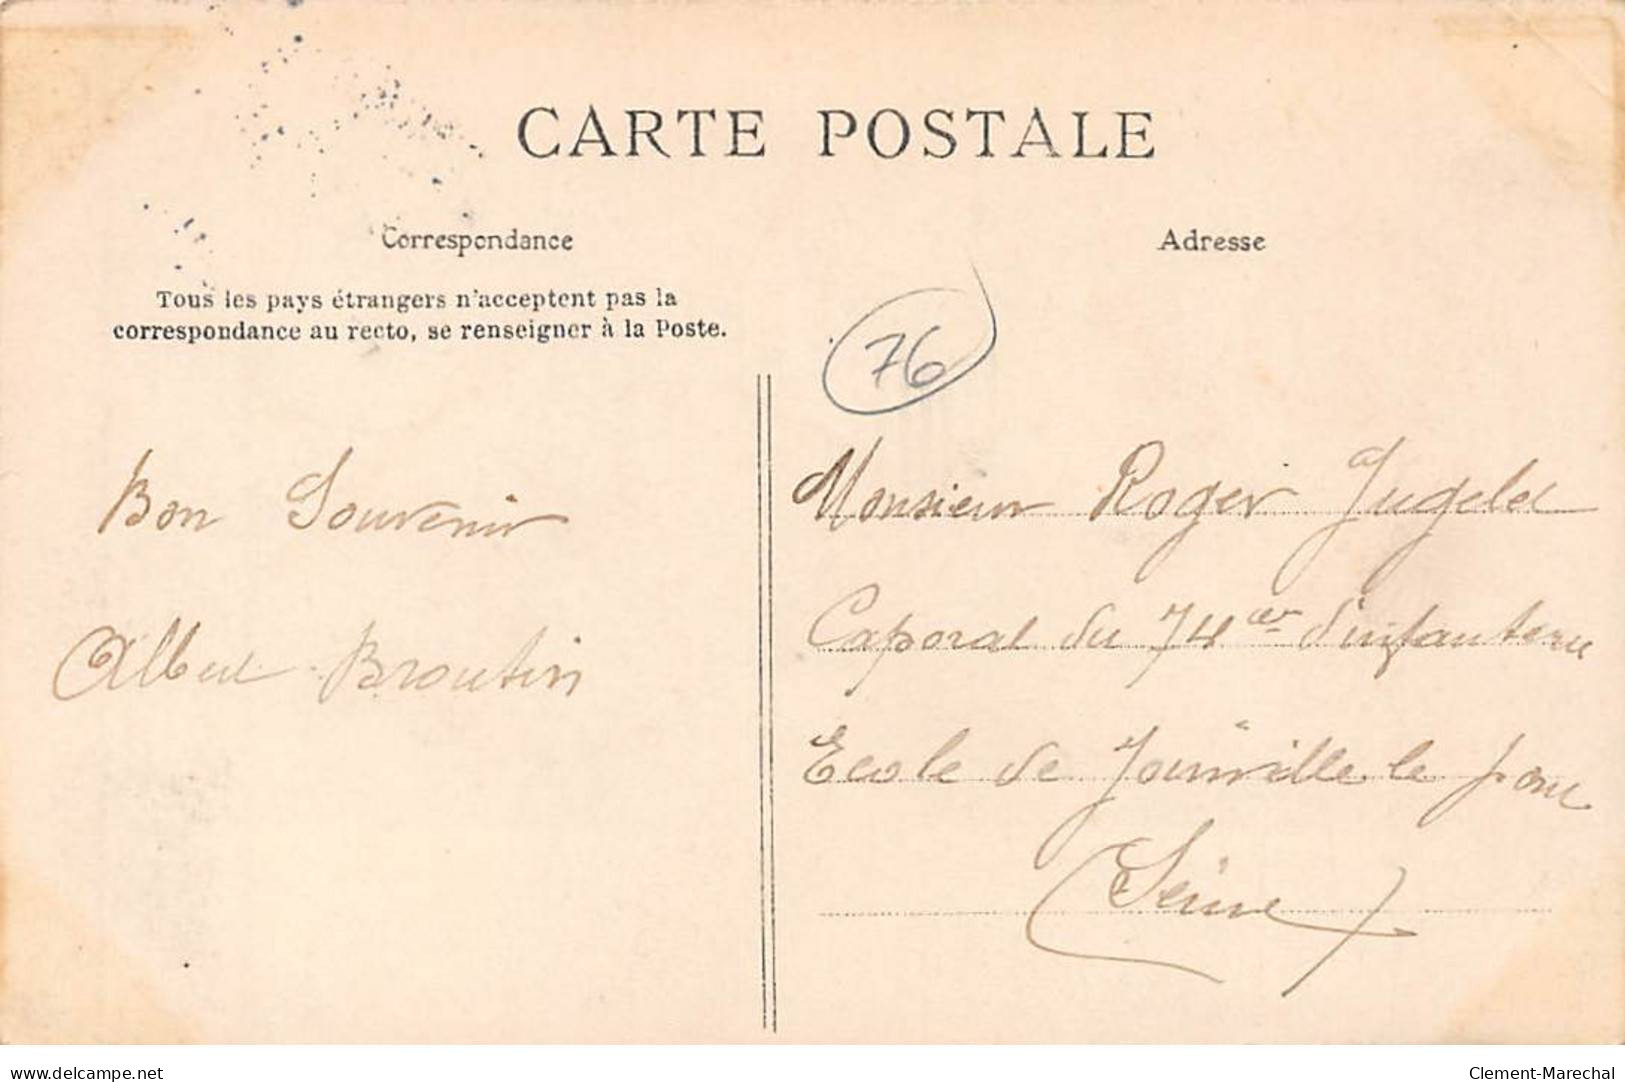 CARTE POSTALE
Correspondance
Adresse
Tous les pays étrangers n'acceptent pas la
correspondance au recto, se renseigner à la Poste.
76
Bon Souvenir
Albert Broutin
Monsieur Roger
Caporal du 74 d'infanterie
Ecole de Joinville le pont
Seine
www.delcampe.net
Clement-Marechal